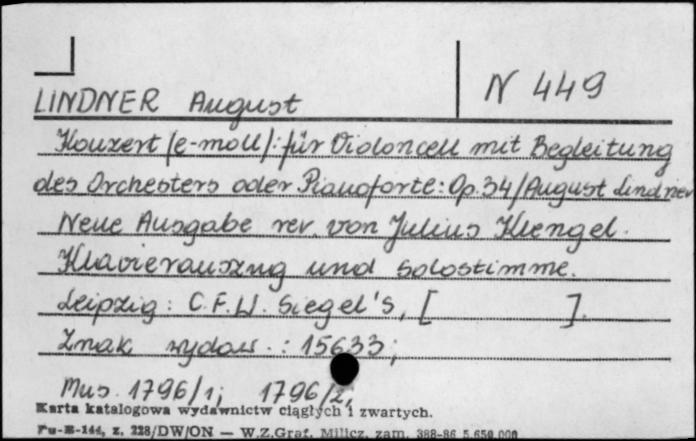 N 449
LINDNER August
Konzert [e-moll]: für Violoncell mit Begleitung
des Orchesters oder Pianoforte: Op.34/August Lindner
Neue Ausgabe rev. von Julius Klengel.
Klavierauszug und Solostimme.
Leipzig: C.F.W. Siegel's, [ ].
Znak wydaw.: 15633;
Mus. 1796/1; 1796/2,
Karta katalogowa wydawnictw ciągłych i zwartych.
Pu-K-144, z. 228/DW/ON — W.Z.Graf. Milicz, zam. 388-86 5.650.000